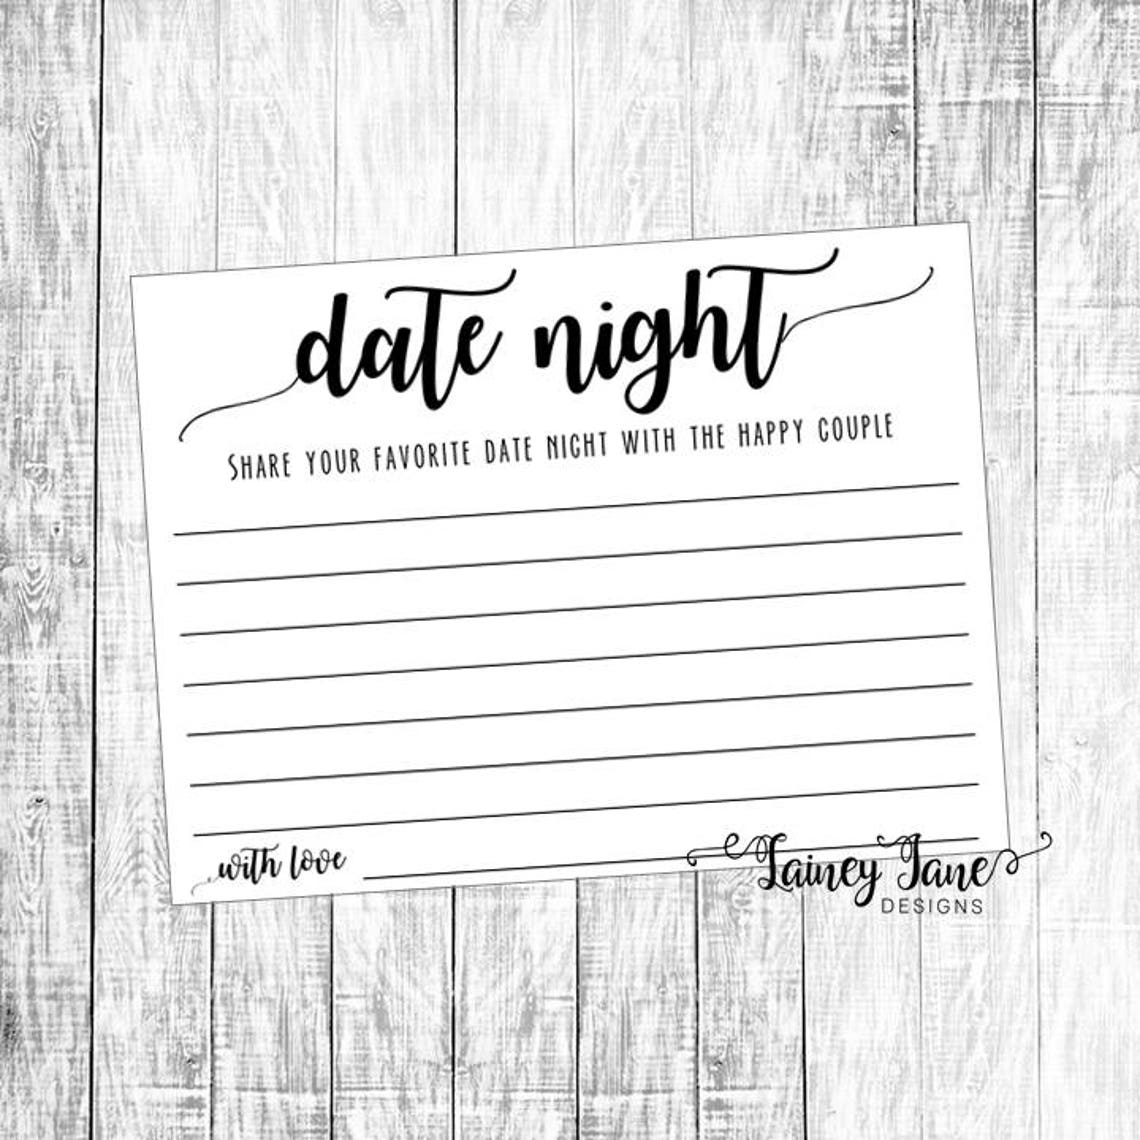 date night
SHARE YOUR FAVORITE DATE NIGHT WITH THE HAPPY COUPLE
with love
Lainey Jane
DESIGNS